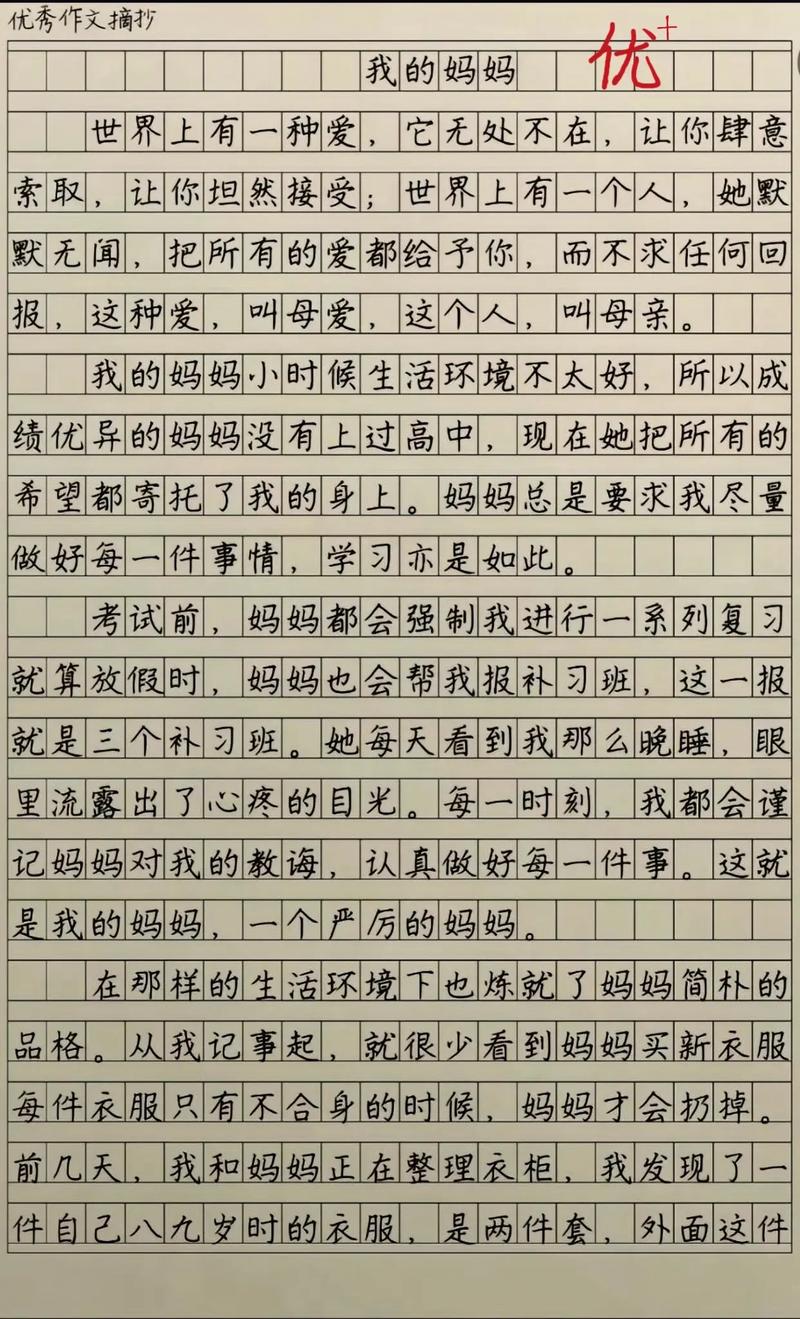 优秀作文摘抄
我的妈妈 优+
世界上有一种爱，它无处不在，让你肆意
索取，让你坦然接受；世界上有一个人，她默
默无闻，把所有的爱都给予你，而不求任何回
报，这种爱，叫母爱，这个人，叫母亲。
我的妈妈小时候生活环境不太好，所以成
绩优异的妈妈没有上过高中，现在她把所有的
希望都寄托了我的身上。妈妈总是要求我尽量
做好每一件事情，学习亦是如此。
考试前，妈妈都会强制我进行一系列复习
就算放假时，妈妈也会帮我报补习班，这一报
就是三个补习班。她每天看到我那么晚睡，眼
里流露出了心疼的目光。每一时刻，我都会谨
记妈妈对我的教诲，认真做好每一件事。这就
是我的妈妈，一个严厉的妈妈。
在那样的生活环境下也炼就了妈妈简朴的
品格。从我记事起，就很少看到妈妈买新衣服
每件衣服只有不合身的时候，妈妈才会扔掉。
前几天，我和妈妈正在整理衣柜，我发现了一
件自己八九岁时的衣服，是两件套，外面这件